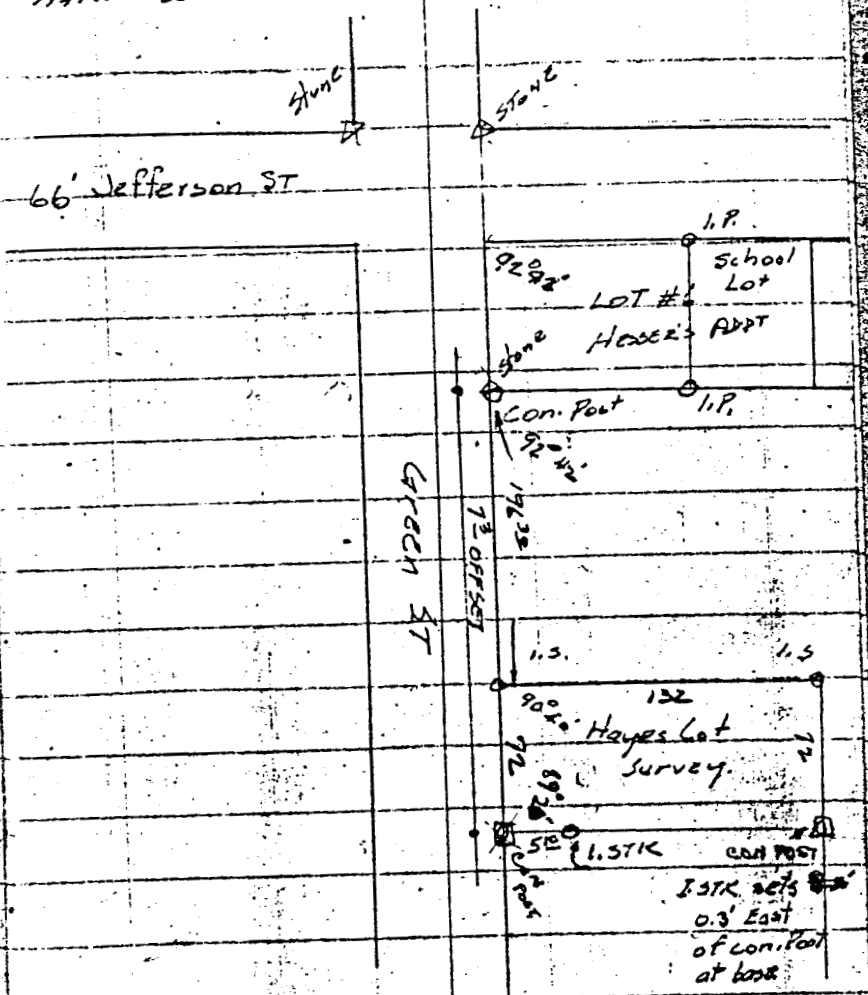 Stone
Stone
66' Jefferson ST
I.P.
School
Lot
LOT #1
HESSER'S ADDT
Stone
Con. Post
I.P.
92° 42'
196.35
7.3 OFFSET
Green ST
I.S.
I.S
132
Hayes Lot
Survey.
72
72
89° 26'
I.STK
Con Post
CON POST
I.STK sets
0.3' East
of con. Post
at base